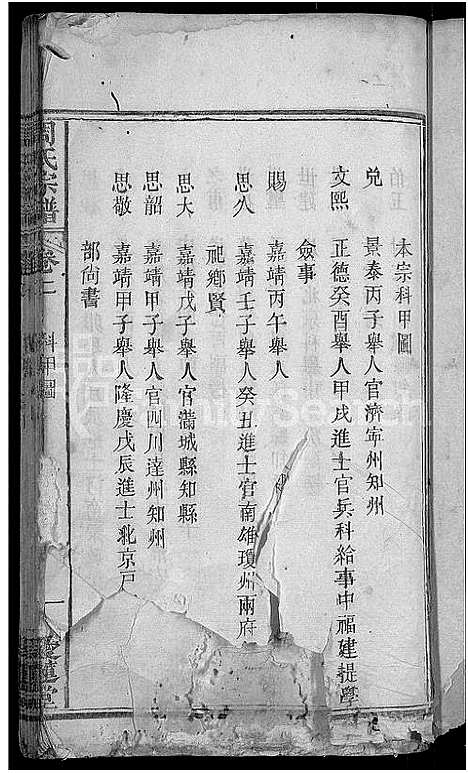 本宗科甲圖
兌 景泰丙子舉人官濟寧州知州
文熙 正德癸酉舉人甲戌進士官兵科給事中福建提學
僉事
賜 嘉靖丙午舉人
思久 嘉靖壬子舉人癸丑進士官南雄瓊州兩府
祀鄉賢
思大 嘉靖戊子舉人官滿城縣知縣
思韶 嘉靖甲子舉人官四川達州知州
思敬 嘉靖甲子舉人隆慶戊辰進士北京戶
部尚書
周氏宗譜 卷二 科甲圖 一 愛蓮堂